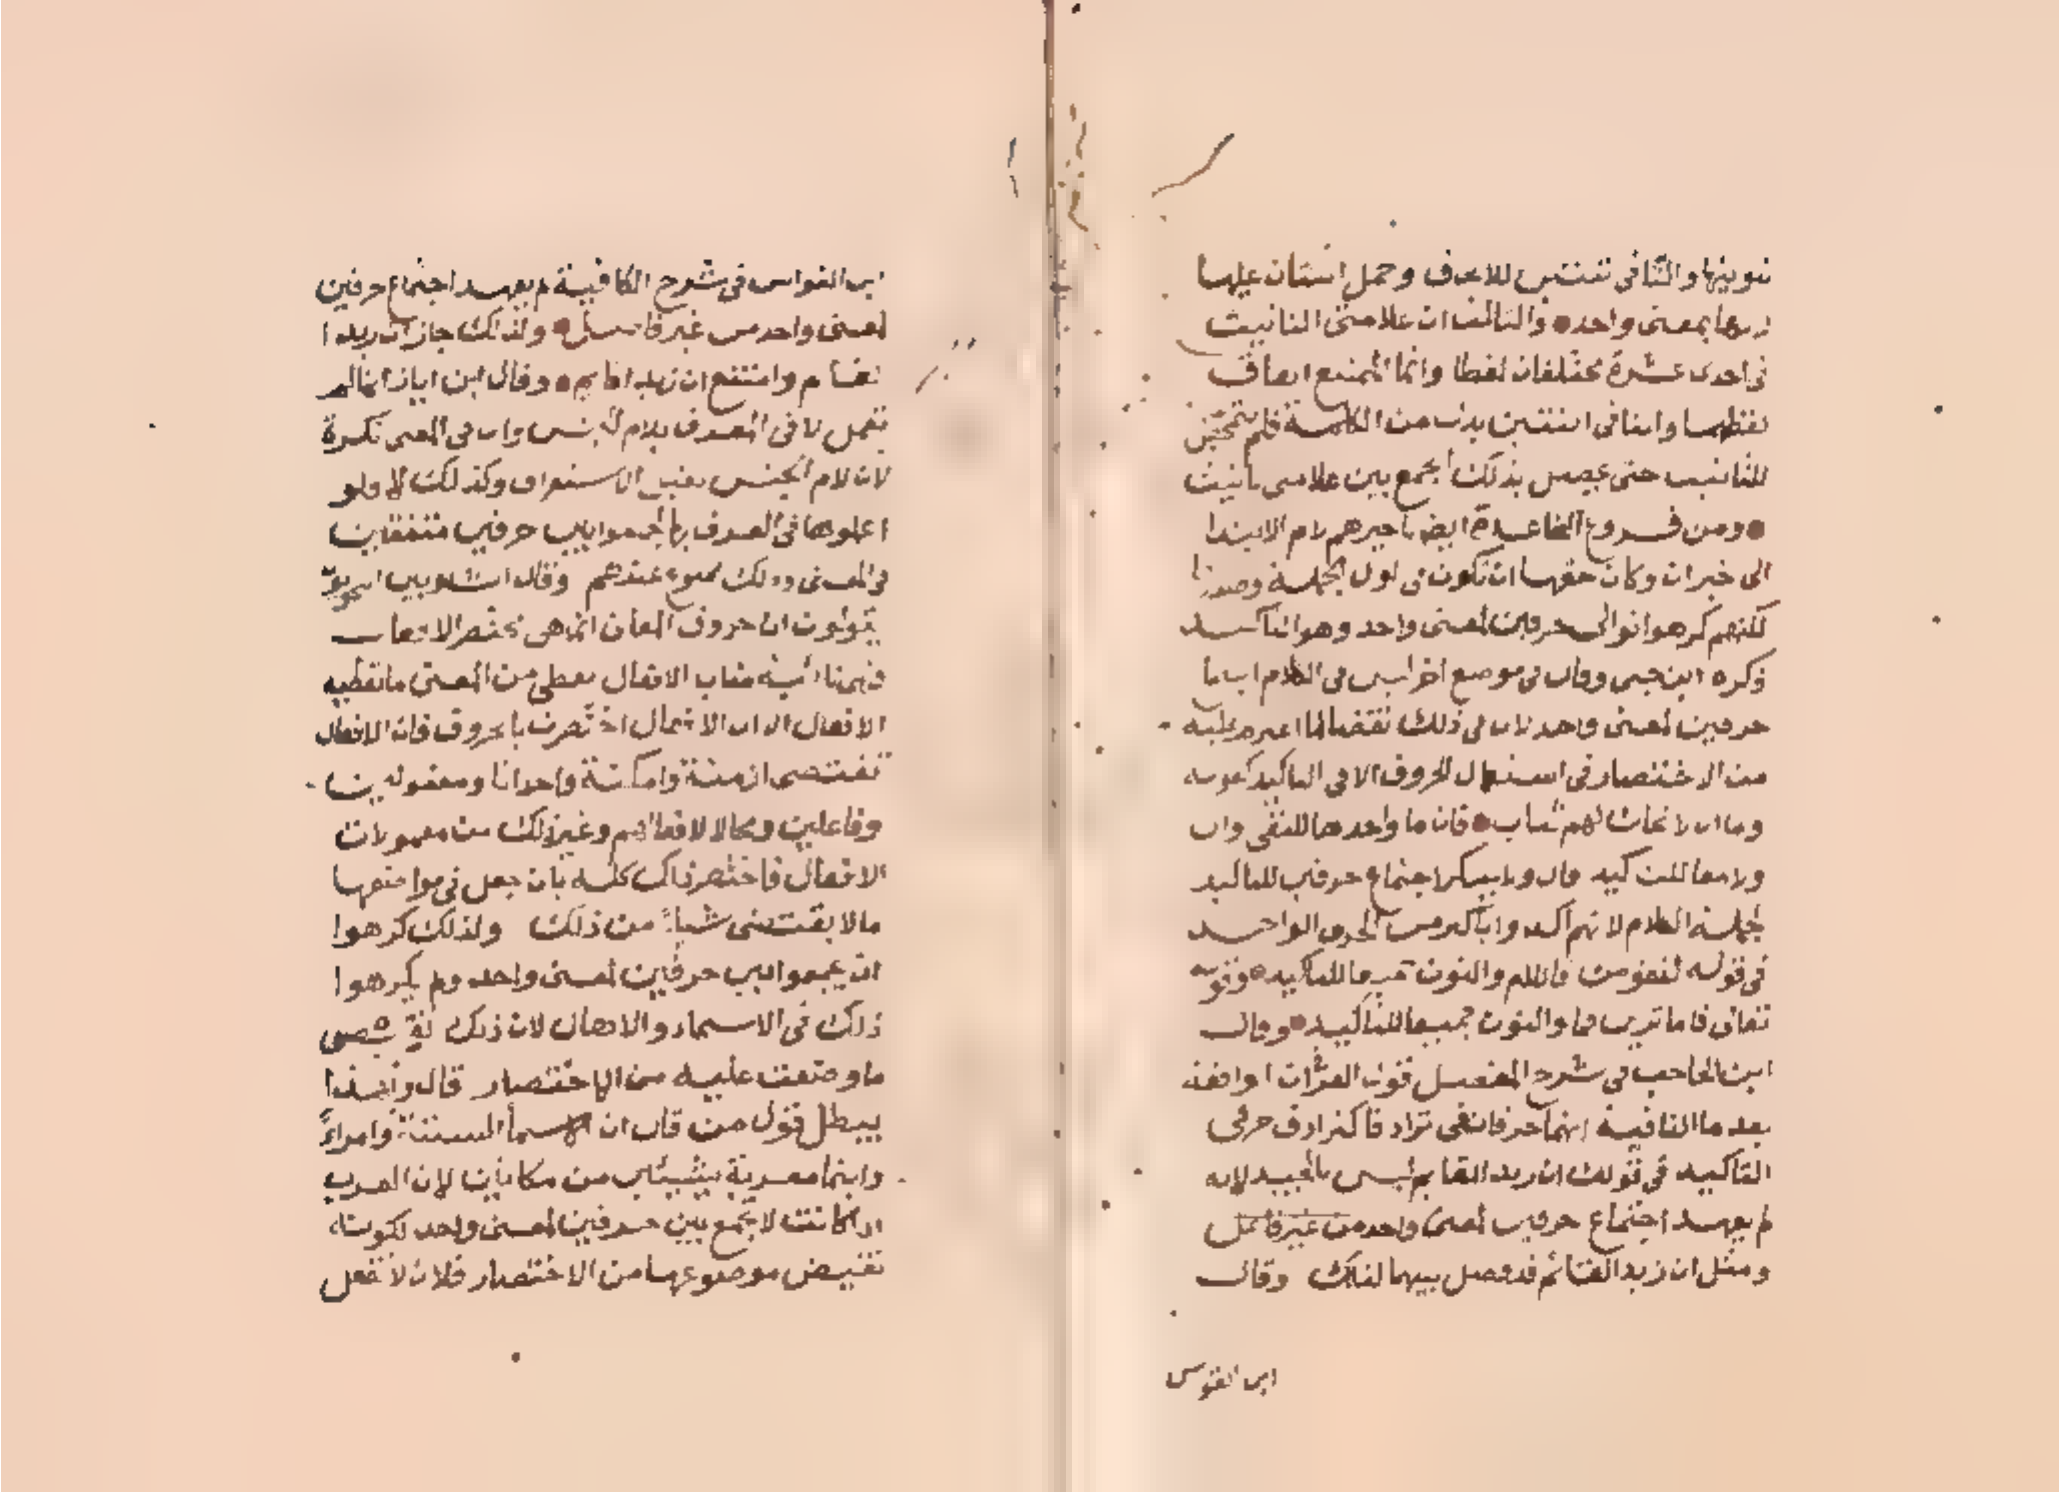 تنوينها والثاني ثنتين للالحاق وحمل اثنتان عليها
بمعنى واحد والثالث ان علامتي التانيث
في احدى عشرة مختلفان لفظا وانما الممتنع اتفاق
لفظهما واما في اثنتين بدل من الكلمة فلم تتمحض
للتانيث حتى يحصل بذلك الجمع بين علامتي تانيث
ومن فروع القاعدة ايضا تاخيرهم لام الابتدا
الى خبر ان وكان حقها ان تكون في اول الجملة وصدرها
لكنهم كرهوا توالي حرفين لمعنى واحد وهو التاكيد
ذكره ابن جني وقال في موضع اخر ليس في الكلام اجتماع
حرفين لمعنى واحد لان في ذلك نقضا لما اعتزم عليه
من الاختصار في استعمال الحروف الا في التاكيد كقوله
وما ان لا تحاك لهم ثياب فان ما وحدها للنفي وان
ولا معا للتوكيد قال ولا ينكر اجتماع حرفين للتاكيد
لجملة الكلام لانهم اكدوا باكثر من الحرف الواحد
في قوله لتقومن فاللام والنون جميعا للتاكيد وقوله
تعالى فاما ترين فما والنون جميعا للتاكيد وقال
ابن الحاجب في شرح المفصل قول الفراء ان الواقعة
بعد ما النافية انهما حرفا نفي ترادفا كترادف حرفي
التاكيد في قولك ان زيد القايم ليس بالجيد لانه
لم يعهد اجتماع حرفين لمعنى واحد من غير فاصل
ومثل ان زيد القائم فصل بينهما لذلك وقال
ابن القواس
ابن القواس في شرح الكافية لم يعهد اجتماع حرفين
لمعنى واحد من غير فاصل ولذلك جاز ان زيدا
لقايم وامتنع ان لزيدا قايم وقال ابن اياز انما لم
تعمل لا في المعرف بلام الجنس وان في المعنى نكرة
لان لام الجنس تفيد الاستغراق وكذلك لا فلو
اعلموها في المعرف بها لجمعوا بين حرفين متفقين
في المعنى وذلك ممنوع عندهم وقال الشلوبين النحويون
يقولون ان حروف المعاني انما هي مختصر الافعال
فهي نائبة مناب الافعال تعطي من المعنى ما تعطيه
الافعال الا ان الافعال اختصرت بالحروف فان الافعال
تقتضي ازمنة وامكنة واحداثا ومفعولين
وفاعلين ومحالا لافعالهم وغير ذلك من معمولات
الافعال فاختصر ذاك كله بان جعل في مواضعها
ما لا يقتضي شيئا من ذلك ولذلك كرهوا
ان يجمعوا بين حرفين لمعنى واحد ولم يكرهوا
ذلك في الاسماء والافعال لان ذلك نقيض
ما وضعت عليه من الاختصار قال ولهذا
يبطل قول من قال ان الاسماء الستة وامراء
وابنما معربة بشيئين من مكانين لان العرب
اذا كانت لا تجمع بين حرفين لمعنى واحد لكونه
نقيض موضوعها من الاختصار فلان لا تفعل